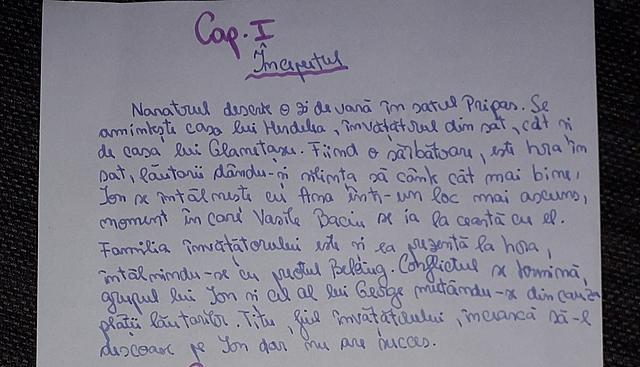 Cap. I
Începutul
Naratorul descrie o zi de vară în satul Pripas. Se
amintește casa lui Herdelea, învățătorul din sat, cât și
de casa lui Glanetașu. Fiind o sărbătoare, este hora în
sat, lăutarii dându-și silința să cânte cât mai bine,
Ion se întâlnește cu Ana într-un loc mai ascuns,
moment în care Vasile Baciu se ia la ceartă cu el.
Familia învățătorului este și ea prezentă la hora,
întâlnindu-se cu preotul Belciug. Conflictul se termină,
grupul lui Ion și cel al lui George mutându-se din cauza
plății lăutarilor. Titu, fiul învățătorului, încearcă să-l
descoase pe Ion dar nu are succes.